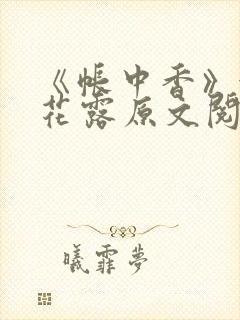 《帐中香》
花露原文阅
曦霏梦